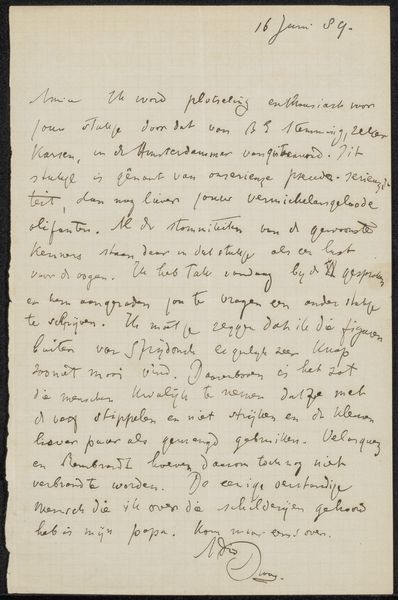 16 Juni 89.
Amice Ik word plotseling enthousiast voor
jouw stukje door dat van B E Stemming, zeker
Karsen, in de Amsterdammer van gisteravond. Dit
stukje is gênant van onserieuze pseudo-serieuzi
teit, dan nog liever jouw
olifanten. Al de stommiteiten van de gewoonste
kenners staan daar in dat stukje als een last
voor de oogen. Ik heb Tak vandaag bij de gesproken
en hem aangeraden jou te vragen een ander stukje
te schrijven. Ik moet je zeggen dat ik die figuren
buiten van Strijdonck eigenlijk zeer knap
zoo niet mooi vind. Daarenboven is het zot
die menschen kwalijk te nemen dat ze met
d verf stippelen en niet strijken en de kleuren
liever puur als gemengd gebruiken. Velasquez
en Rembrandt hoeven daarom toch nog niet
verbrand te worden. De eenige verstandige
mensch die ik over die schilderijen gehoord
heb is mijn papa. Kom maar eens over.